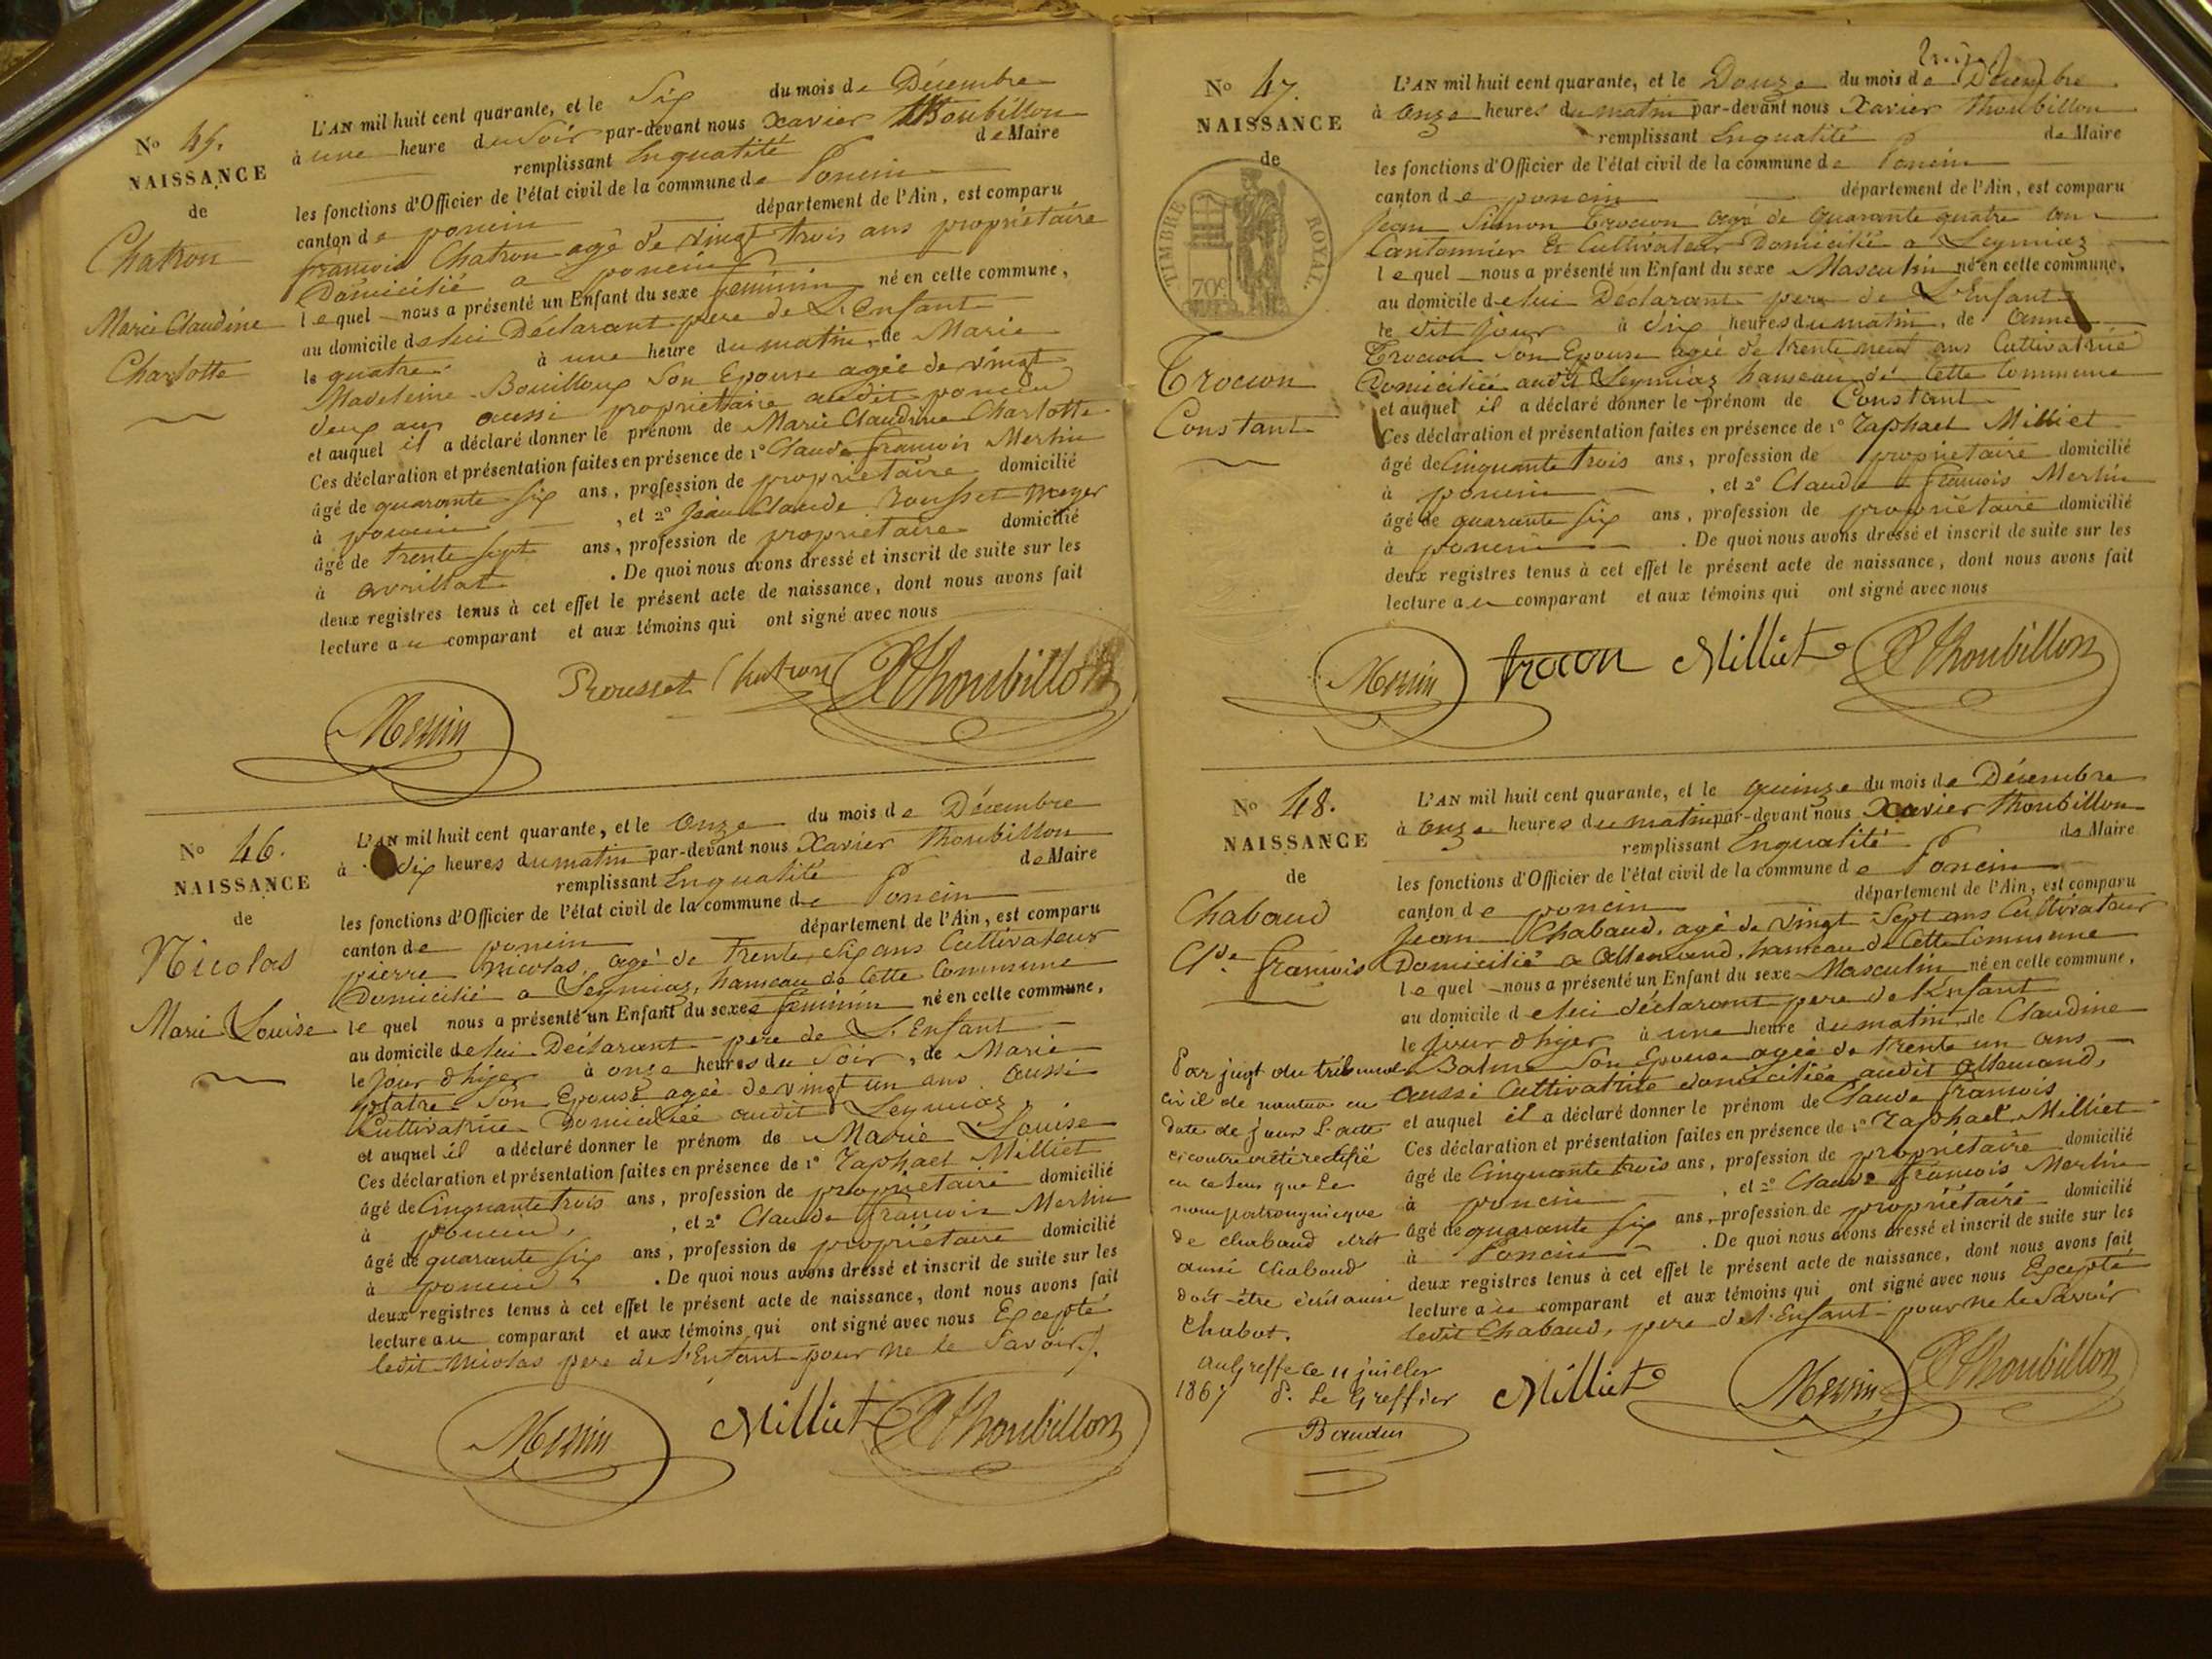 N° 45.
NAISSANCE
de
Chatron
Marie Claudine
Charlotte
L'AN mil huit cent quarante, et le Six du mois de Décembre
à une heure du Soir par-devant nous Xavier Thoubillon
remplissant Enqualité de Maire
les fonctions d'Officier de l'état civil de la commune de Poncin
canton de poncin département de l'Ain, est comparu
françois Chatron agé de vingt trois ans propriétaire
Domicilié a poncin
lequel nous a présenté un Enfant du sexe feminin né en cette commune,
au domicile de lui Déclarant pere de L'Enfant
le quatre à une heure du matin, de Marie
Madeleine Bouilloux Son Epouse agée de vingt
deux ans aussi propriétaire audit poncin
et auquel il a déclaré donner le prénom de Marie Claudine Charlotte
Ces déclaration et présentation faites en présence de 1° Claude françois Merlin
âgé de quarante six ans, profession de propriétaire domicilié
à poncin , et 2° Jean Claude Rousset Meyer
âgé de trente sept ans, profession de propriétaire domicilié
à avrillat . De quoi nous avons dressé et inscrit de suite sur les
deux registres tenus à cet effet le présent acte de naissance, dont nous avons fait
lecture au comparant et aux témoins qui ont signé avec nous
Rousset Chatron Thoubillon
Merlin
N° 46.
NAISSANCE
de
Nicolas
Marie Louise
L'AN mil huit cent quarante, et le Onze du mois de Décembre
à dix heures du matin par-devant nous Xavier Thoubillon
remplissant Enqualité de Maire
les fonctions d'Officier de l'état civil de la commune de Poncin
canton de poncin département de l'Ain, est comparu
pierre Nicolas, agé de Trente six ans Cultivateur
Domicilié a Leymiaz, hameau de Cette Commune
lequel nous a présenté un Enfant du sexe feminin né en cette commune,
au domicile de lui Déclarant pere de L'Enfant
le Jour d'hyer à onze heures du Soir, de Marie
Son Epouse agée de vingt un ans aussi
Cultivatrice Domiciliée audit Leymiaz
et auquel il a déclaré donner le prénom de Marie Louise
Ces déclaration et présentation faites en présence de 1° Raphael Milliet
âgé de Cinquante trois ans, profession de propriétaire domicilié
à poncin, , et 2° Claude françois Merlin
âgé de quarante six ans, profession de propriétaire domicilié
à poncin, . De quoi nous avons dressé et inscrit de suite sur les
deux registres tenus à cet effet le présent acte de naissance, dont nous avons fait
lecture au comparant et aux témoins qui ont signé avec nous Excepté
ledit Nicolas pere de l'Enfant pour ne le Savoir.
Merlin Milliet Thoubillon
N° 47.
NAISSANCE
de
TIMBRE ROYAL.
70c
Trocion
Constant
L'AN mil huit cent quarante, et le Douze du mois de Décembre
à Onze heures du matin par-devant nous Xavier Thoubillon
remplissant Enqualité de Maire
les fonctions d'Officier de l'état civil de la commune de Poncin
canton de poncin département de l'Ain, est comparu
Jean Simon Trocion agé de quarante quatre ans
Cantonnier Et Cultivateur Domicilié a Leymiaz
lequel nous a présenté un Enfant du sexe Masculin né en cette commune,
au domicile de lui Déclarant pere de L'Enfant
le dit Jour à dix heures du matin, de anne
Trocion Son Epouse agée de trente neuf ans Cultivatrice
Domiciliée audit Leymiaz hameau de Cette Commune
et auquel il a déclaré donner le prénom de Constant
Ces déclaration et présentation faites en présence de 1° Raphael Milliet
âgé de Cinquante trois ans, profession de propriétaire domicilié
à poncin , et 2° Claude françois Merlin
âgé de quarante six ans, profession de propriétaire domicilié
à poncin . De quoi nous avons dressé et inscrit de suite sur les
deux registres tenus à cet effet le présent acte de naissance, dont nous avons fait
lecture au comparant et aux témoins qui ont signé avec nous
Merlin trocion Milliet Thoubillon
N° 48.
NAISSANCE
de
Chabaud
Cde françois
Par jugt du tribunal
civil de nantua en
date de jour L'acte
ci contre a été rectifié
en ce sens que Le
nom patronymique
de chabaud écrit
aussi Chaboud
doit être écrit ainsi
Chabot.
au Greffe ce 11 juillet
1867 P. Le Greffier
L'AN mil huit cent quarante, et le quinze du mois de Décembre
à onze heures du matin par-devant nous Xavier Thoubillon
remplissant Enqualité de Maire
les fonctions d'Officier de l'état civil de la commune de Poncin
canton de poncin département de l'Ain, est comparu
Jean Chabaud, agé de vingt Sept ans Cultivateur
Domicilié a allemand, hameau de Cette Commune
lequel nous a présenté un Enfant du sexe Masculin né en cette commune,
au domicile de lui déclarant pere de l'Enfant
le Jour d'hyer à une heure du matin, de Claudine
Balme Son Epouse agée de trente un ans
aussi Cultivatrice domiciliée audit allemand,
et auquel il a déclaré donner le prénom de Claude françois
Ces déclaration et présentation faites en présence de 1° Raphael Milliet
âgé de Cinquante trois ans, profession de propriétaire domicilié
à poncin , et 2° Claude françois Merlin
âgé de quarante six ans, profession de propriétaire domicilié
à Poncin . De quoi nous avons dressé et inscrit de suite sur les
deux registres tenus à cet effet le présent acte de naissance, dont nous avons fait
lecture au comparant et aux témoins qui ont signé avec nous Excepté
ledit Chabaud, pere de l'Enfant pour ne le Savoir
Milliet Merlin Thoubillon